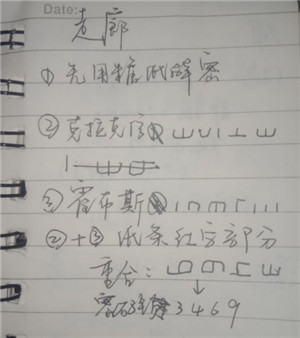 Date:
走廊
① 先用糖纸解密
② 克拉克
③ 霍布斯
②+③ 纸条红字部分
重合:
密码 3469